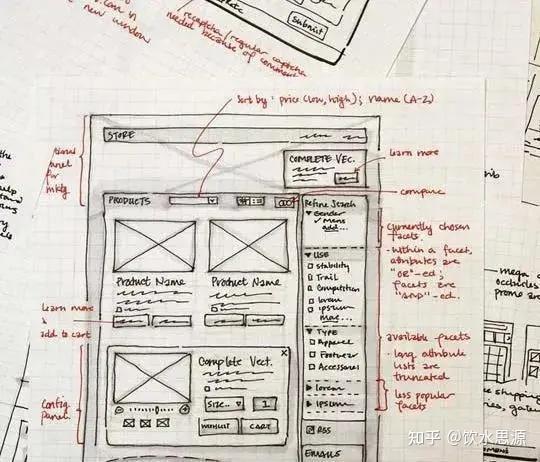 can in
new window
recaptcha/regular captcha
needed because of comment
submit
sort by: price (low, high); name (A-Z)
STORE
COMPLETE VEC.
learn more
compare
PRODUCTS
Refine Search
Gender
✓ Mens
add...
currently chosen
facets.
- within a facet,
attributes are
"OR"-ed;
facets are
"and"-ed.
USE
Stability
Trail
Competition
lorem
ipsum
more...
Product Name
Product Name
learn more
&
add to cart
TYPE
Apparel
Footwear
Accessories
available facets
- long attribute
lists are
truncated
lorem
ipsum
less popular
facets
Config
panel
Complete Vect.
×
Size..
1
WISHLIST
CART
RSS
EMAILS
mega
shipping
知乎 @饮水思源